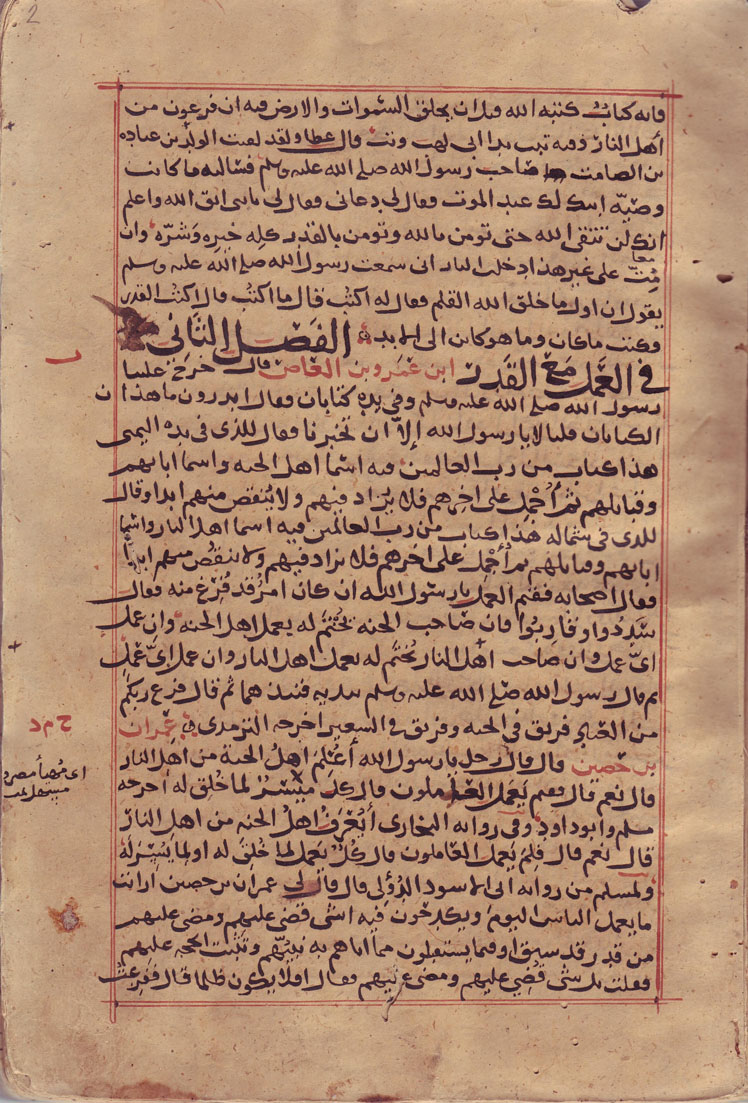 2
فانه كتاب كتبه الله قبل ان يخلق السموات والارض فيه ان فرعون من
أهل النار وفيه تبت يدا ابى لهب وتب قال عطا ولقد لقيت الوليد بن عباده
بن الصامت صاحب رسول الله صلى الله عليه وسلم فسالته ما كانت
وصيّة ابيك لك عند الموت فقال لى دعانى فقال لى يا بنى اتق الله واعلم
انك لن تتقى الله حتى تومن بالله وتومن بالقدر كله خيره وشرّه وان
مُتّ على غير هذا دخلت النار انى سمعت رسول الله صلى الله عليه وسلم
معا
يقول ان اول ما خلق الله القلم فقال له اكتب قال ما اكتب قال اكتب القدر
فكتب ماكان وما هو كان الى الابد الفصل الثانى
فى العمل مع القدر ابن عمرو بن العاص قال خرج علينا
ر
رسول الله صلى الله عليه وسلم وفى يده كتابان فقال اتدرون ما هذان
الكتابان قلنا لا يا رسول الله إلاّ ان تخبرنا فقال للذى فى يده اليمى
هذا كتاب من رب العالمين فيه اسما اهل الجنه واسما ابايهم
وقبايلهم ثم أُجْمِل على اخرهم فلا يزاد فيهم ولا ينقص منهم ابدا وقال
للذى فى شماله هذا كتاب من رب العالمين فيه اسما اهل النار واسما
ابايهم وقبايلهم ثم أُجْمِل على اخرهم فلا يزاد فيهم ولا ينقص منهم ابدا
فقال اصحابه ففيم العمل يا رسول الله ان كان امرٌ قد فُرِغ منه فقال
سَدِّدوا وقاربُوا فان صاحب الجنه يُختم له بعمل اهل الجنه وان عمل
اىّ عمل وان صاحب اهل النار يُختم له بعمل اهل النار وان عمل اىّ عمل
ثم قال رسول الله صلى الله عليه وسلم بيديه فنبذهما ثم قال فرغ ربكم
من العباد فريق فى الجنه وفريق فى السعير اخرجه الترمذى عمران
خ م د
بن حصين قال قال رجل يا رسول الله أَعُلِمَ اهلُ الجنة من اهل النار
قال نعم قال ففيم يعمل العاملون قال كلٌّ ميسَّرٌ لما خُلق له اخرجه
مسلم وابو داود وفى روايه البخارى أيُعْرَفُ اهلُ الجنه من اهل النار
قال نعم قال فلِمَ يَعمل العاملون قال كُلٌّ يعمل لما خُلق له او لما يُسِّر له
ولمسلم من روايه ابى الاسود الدُؤَلِى قال قال لى عمران بن حصين ارايت
ما يعمل الناس اليوم ويكدحون فيه اشى قضى عليهم ومضى عليهم
من قدر قد سبق او فيما يستقبلون مما اتاهم به نبيّهم وثبتت الحجه عليهم
فقلت بل شى قُضِى عليهم ومضى عليهم فقال افلا يكون ظلما قال ففزعت